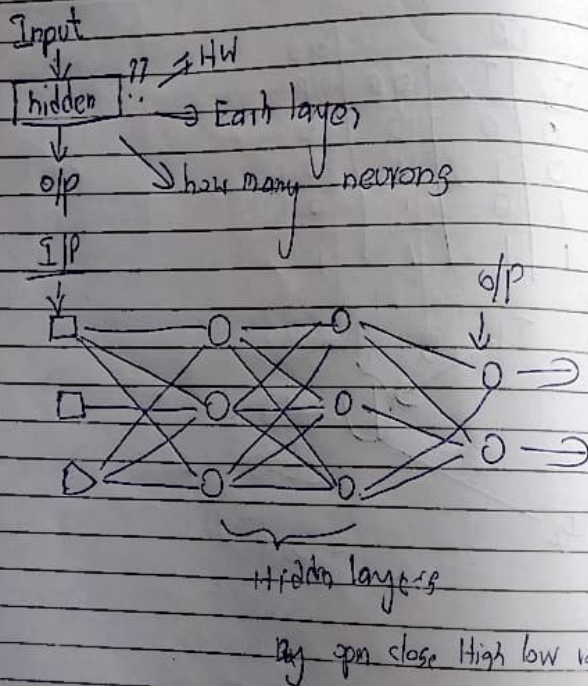 Input
?? → HW
hidden → Each layer
O/P how many neurons
I/P
O/P
Hiddn layers
By opn close High low